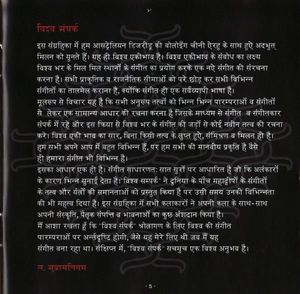 विश्व संपर्क
इस संग्रहिका में हम आस्ट्रेलियन डिजरीडू की वोलोईन चीनी ऐरहू के साथ हुऐ अदभुत्
मिलन को सुनते हैं। यह ही विश्व एकीभाव है। विश्व एकीभाव के संबोध का लक्ष्य
विश्व भर के मिल मिल स्थानों के संगीत का प्रयोग करके एक नऐ संगीत की संरचना
करना है। सभी प्राकृतिक व राजनीतिक सीमाओं को परे छोड़ कर सभी विभिन्न
संगीतों का तालमेल कराना है, क्योंकि संगीत ही एक सर्वव्यापी भाषा है।
मूलरुप से विचार यह है कि सभी अनुरुप तत्वों को भिन्न भिन्न पारम्पराओं व संगीतों
से लेकर एक सामान्य आधार की रचना करना है जिसके माध्यम से संगीत व संगीतकार
संपर्क में रहें और इस क्रिया से विश्व भर के संगीत की जड़ों से कोई नवीन तत्व की रचना
करे। विश्व एकी भाव का सार, बिना किसी तत्व के लुप्त हुऐ, संमिश्रण व मिलन ही है।
हम सभी अपने आप में बहुत विभिन्न हैं, पर हम सभी की मानवीय प्रकृति है वैसे
ही हमारा संगीत भी विभिन्न है।
इसका आधार एक ही है। संगीत साधारणत: सात सुरों पर आधारित है जो कि अलंकारों
के कारण भिन्न सुनाई देता है। विश्व संपर्क ने दुनिया के पाँच महाद्वीपों के संगीतों
के तत्व और शैली की समानताओं को प्रस्तुत किया है पर उसी समय उनकी विभिन्नता
की भी महत्व दिया है। इस संग्रहिका में सभी कलाकारों ने अपनी कला के साथ-साथ
अपनी संस्कृति, पैतृक संपत्ति व भावनाओं का कुछ अंशदान किया है।
मैं आशा रखता हूँ कि 'विश्व संपर्क' श्रोतागण के लिए विश्व की संगीत
पारम्पराओं पर अर्न्तदृष्टि होगी, जैसे यह मेरे लिए भी जब मैं यह
संगीत बना रहा था। संक्षिप्त में, 'विश्व संपर्क' सचमुच एक विश्व अनुभव है।
ल. सुब्रामनियम
- 5 -